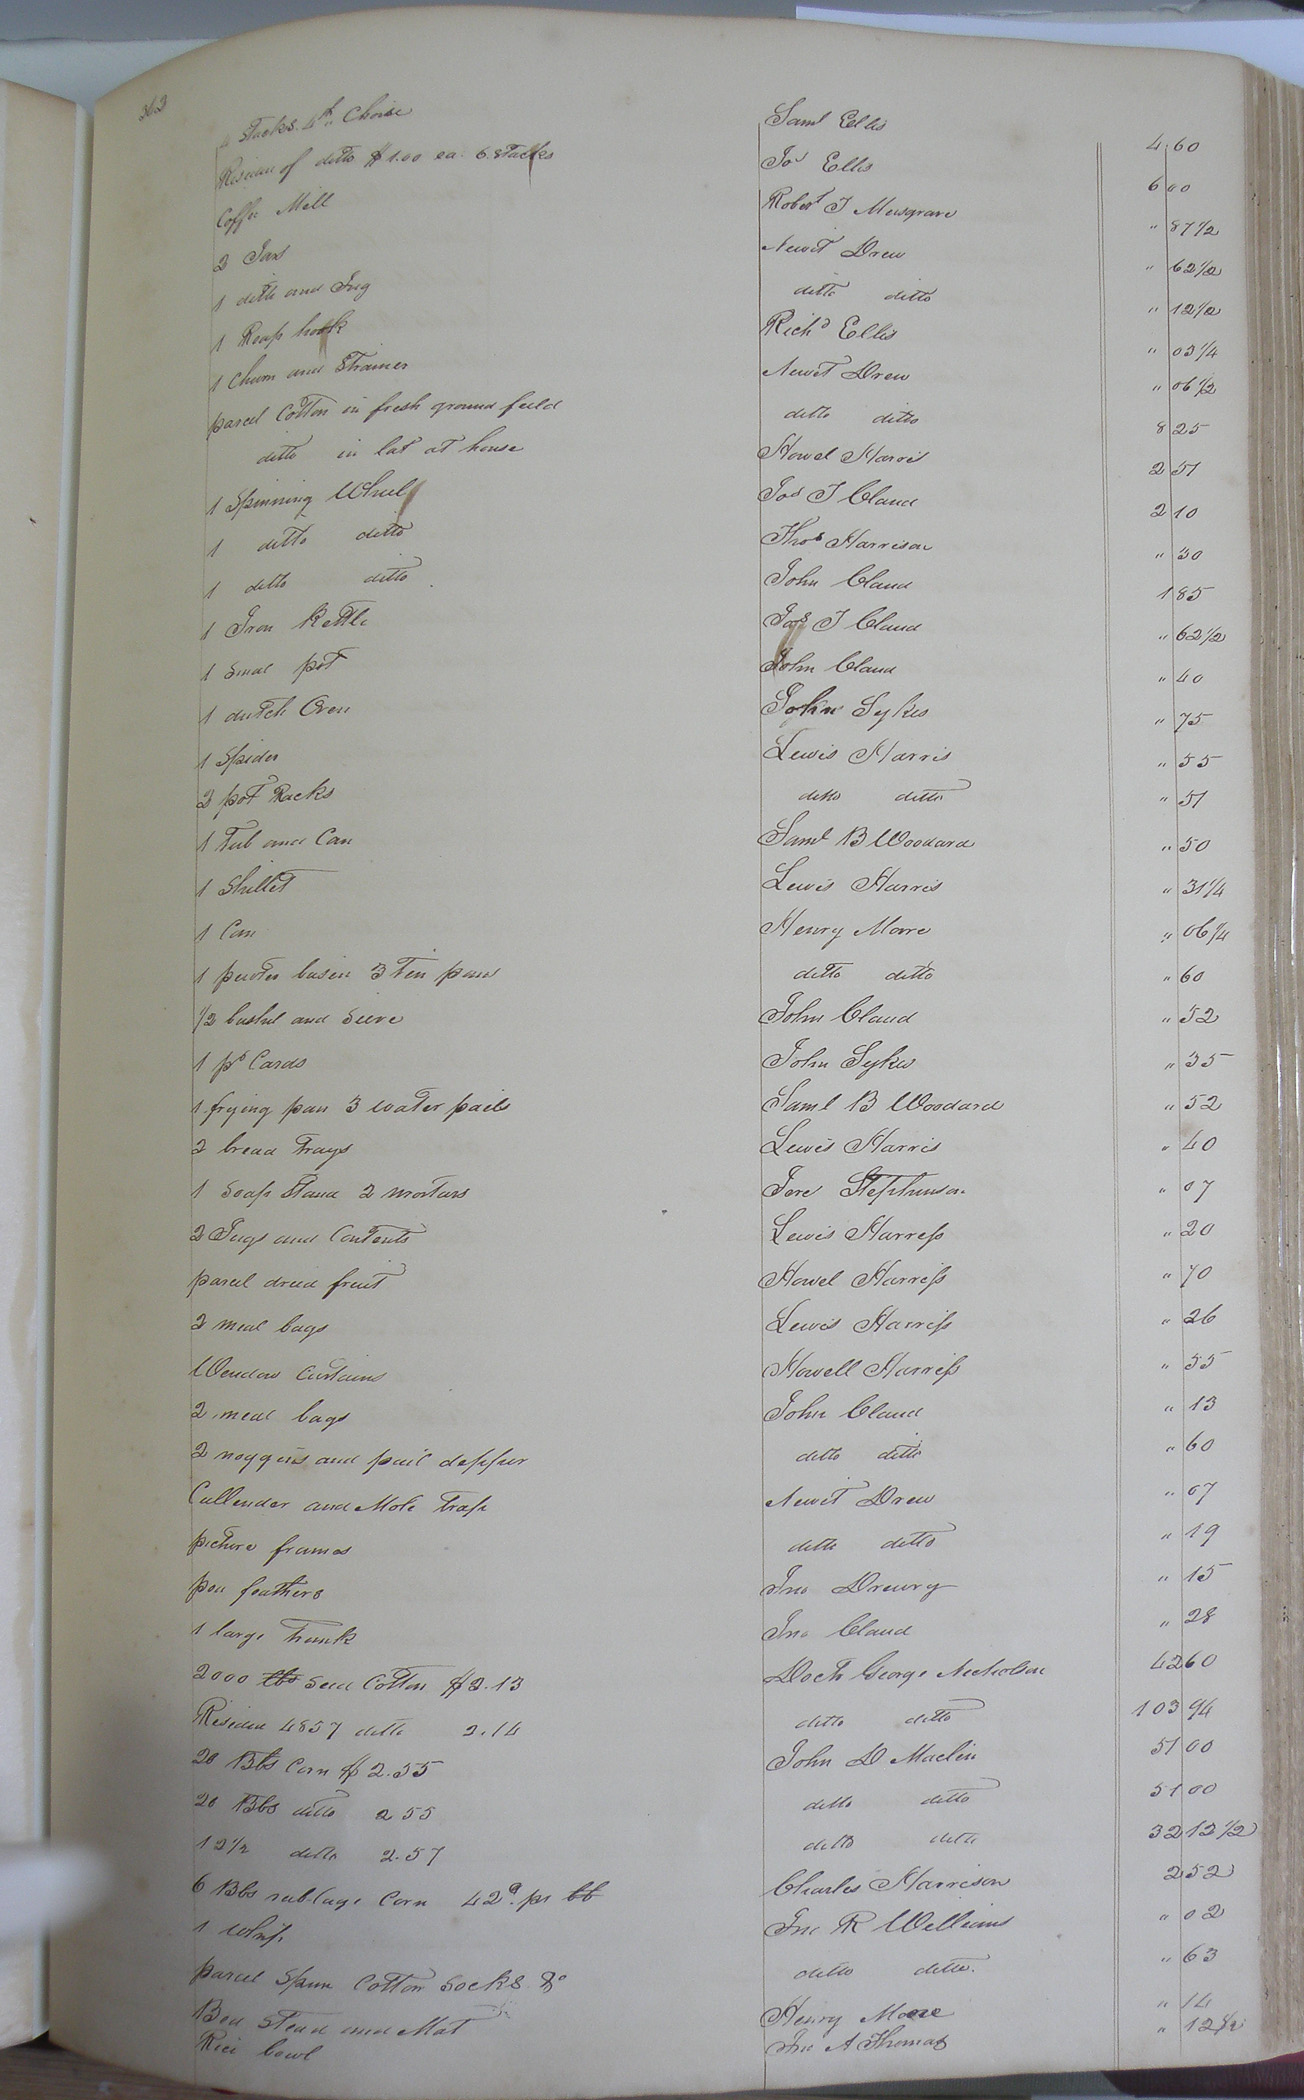 362
4 Stacks 4th Choise Saml Ellis 4 60
Residue of ditto $1.00 ea. 6 Stacks Jos Ellis 6 00
Coffee Mill Robert J Musgrave " 87 1/2
2 Jars Newit Drew " 62 1/2
1 ditto and Jug ditto ditto " 12 1/2
1 Reap hook Richd Ellis " 03 1/4
1 Churn and Strainer Newit Drew " 06 1/2
parcel Cotton in fresh ground field ditto ditto 8 25
ditto in lot at house Howel Harris 2 51
1 Spinning Wheel Jos J Claud 2 10
1 ditto ditto Thos Harrison " 30
1 ditto ditto John Claud 1 85
1 Iron Kettle Jos J Claud " 62 1/2
1 Smal pot John Claud " 40
1 dutch Oven John Sykes " 75
1 Spider Lewis Harris " 55
2 pot Racks ditto ditto " 51
1 Tub and Can Saml B Woodard " 50
1 Skillet Lewis Harris " 31 1/4
1 Can Henry Moore " 06 1/4
1 pewter basin 3 tin pans ditto ditto " 60
1/2 bushel and Sieve John Claud " 52
1 pr Cards John Sykes " 35
1 frying pan 3 water pails Saml B Woodard " 52
2 bread trays Lewis Harris " 40
1 Soap Stand 2 mortars Jere Stephenson " 07
2 Jugs and Contents Lewis Harress " 20
parcel dried fruit Howel Harress " 70
2 meal bags Lewis Harriss " 26
Wendow Curtains Howell Harriss " 55
2 meal bags John Claud " 13
2 noggins and pail depper ditto ditto " 60
Cullender and Mole trap Newit Drew " 07
picture frames ditto ditto " 19
pea feathers Jno Drewry " 15
1 large trunk Jno Claud " 28
2000 lbs Seed Cotton $2.13 Doctr George Nicholson 42 60
Residue 4857 ditto 2.14 ditto ditto 103 94
20 Bbs Corn $2.55 John D Maclin 51 00
20 Bbs ditto 2 55 ditto ditto 51 00
12 1/2 ditto 2.57 ditto ditto 32 12 1/2
6 Bbs rubbage Corn 42 pr bb Charles Harrison 2 52
1 whip Jno R Williams " 02
parcel Spun Cotton Socks &c ditto ditto. " 63
Bed Stead and Mat Henry Moore " 14
Rice bowl Jno A Thomas " 12 1/2